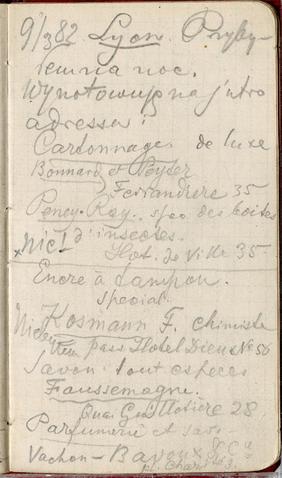 9/3 82 Lyon. Przyby-
łem na noc.
Wynotowuję na jutro
adressa:
Cartonnages de luxe
Bonnard et Peyser
Ferrandiere 35
Peney-Ray. spec des boites
× Nic! d'insectes.
Hot. de Ville 35
Encre à tampon.
special
Kosmann F. chimiste
pass Hotel Dieu № 56
Savon tout especes
Faussemagne.
Quai Guillotiere 28
Parfumerie et savo
Vachon-Bavoux & Cie
pl. Charité 3.